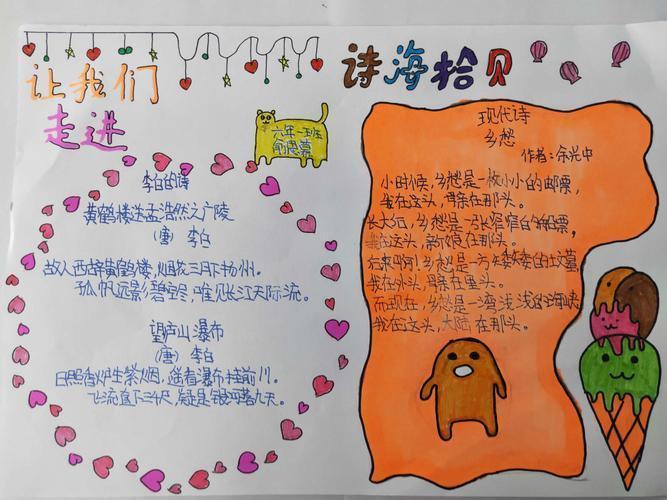 让我们
走进
诗海拾贝
六年一班
李白的诗
黄鹤楼送孟浩然之广陵
(唐) 李白
故人西辞黄鹤楼，烟花三月下扬州。
孤帆远影碧空尽，唯见长江天际流。
望庐山瀑布
(唐) 李白
日照香炉生紫烟，遥看瀑布挂前川。
飞流直下三千尺，疑是银河落九天。
现代诗
乡愁
作者：余光中
小时候，乡愁是一枚小小的邮票，
我在这头，母亲在那头。
长大后，乡愁是一张窄窄的船票，
我在这头，新娘在那头。
后来啊！乡愁是一方矮矮的坟墓，
我在外头，母亲在里头。
而现在，乡愁是一湾浅浅的海峡
我在这头，大陆在那头。